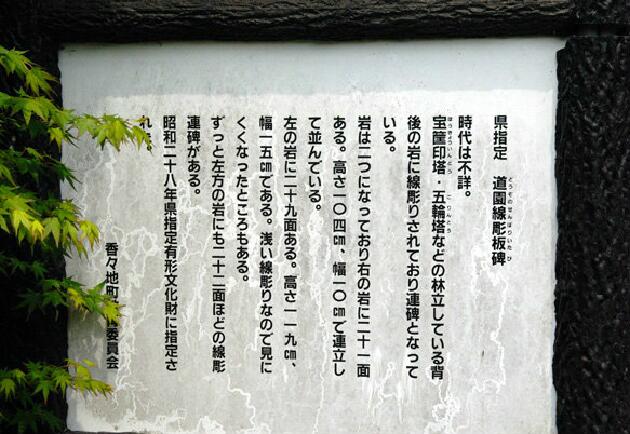 県指定　道園線彫板碑
どうそのせんぼりいたび
時代は不詳。
宝筐印塔・五輪塔などの林立している背
ほうきょういんとう　ごりんとう
後の岩に線彫りされており連碑となって
いる。
岩は二つになっており右の岩に二十一面
ある。高さ一〇四㎝、幅一〇㎝で連立し
て並んでいる。
左の岩に二十九面ある。高さ一一九㎝、
幅一五㎝である。浅い線彫りなので見に
くくなったところもある。
ずっと左方の岩にも二十二面ほどの線彫
連碑がある。
昭和二十八年県指定有形文化財に指定さ
れた。
香々地町 委員会